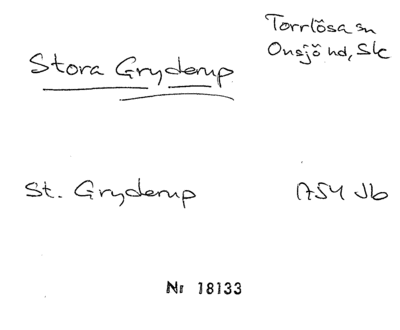 Torrlösa sn
Onsjö hd, Sk
Stora Gryderup
St. Gryderup 1754 Jb
Nr 18133